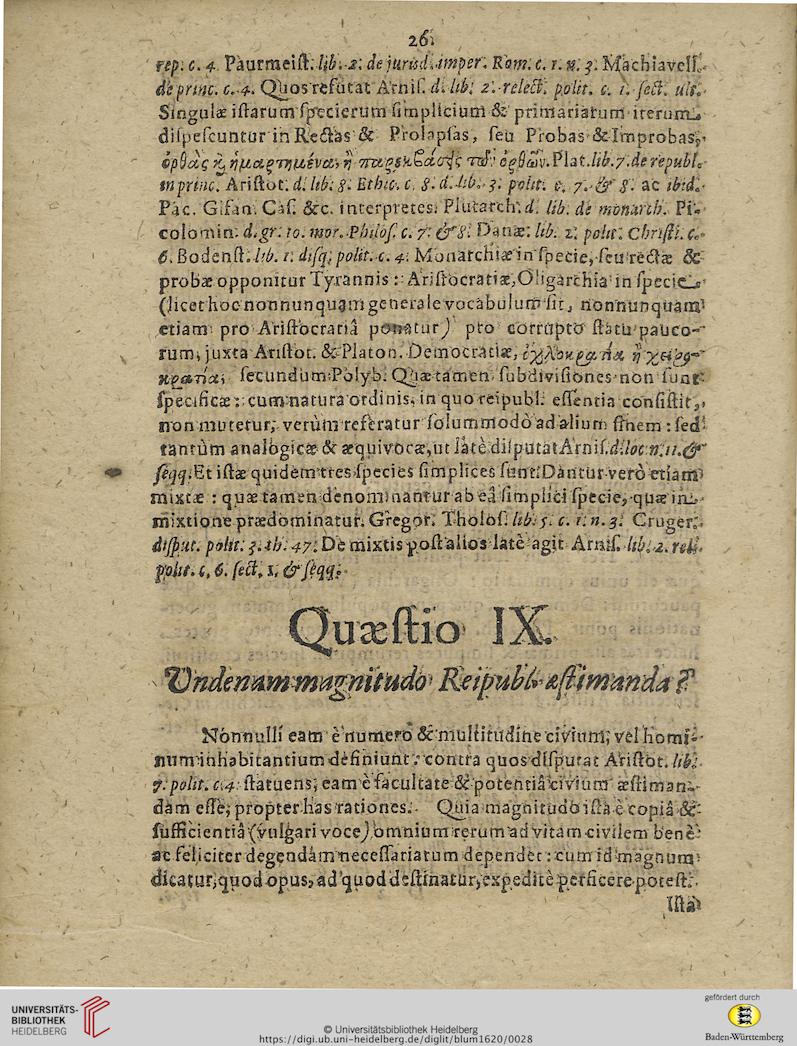 26.
rep. c. 4. Paurmeist. lib. 2. de jurisd. imper. Rom. c. 1. n. 3. Machiavell.
de princ. c. 4. Quos refutat Arnis. d. lib. 2. relect. polit. c. 1. sect. ult.
Singulæ istarum specierum simplicium & primariarum iterum
dispescuntur in Rectas & Prolapsas, seu Probas & Improbas,
ὀρθὰς ϗ ἡμαρτημένας, ἢ παρεκβάσεις τῶν ὀρθῶν. Plat. lib. 7. de republ.
in princ. Aristot. d. lib. 8. Ethic. c. 8. d. lib. 3. polit. c. 7. & 8. ac ibid.
Pac. Gifan. Cas. &c. interpretes. Plutarch. d. lib. de monarch. Pi-
colomin. d. gr. 10. mor. Philos. c. 7. & 8. Danæ. lib. 1. polit. Christi. c.
6. Bodenst. lib. 1. disq. polit. c. 4. Monarchiæ in specie, seu rectæ &
probæ opponitur Tyrannis: Aristocratiæ, Oligarchia in specie
(licet hoc nonnunquam generale vocabulum sit, nonnunquam
etiam pro Aristocratiâ ponatur) pro corrupto statu pauco-
rum, juxta Aristot. & Platon. Democratiæ, ὀχλοκρατία ἢ χειρο-
κρατία, secundum Polyb. Quæ tamen subdivisiones non sunt
specificæ: cum natura ordinis, in quo reipubl. essentia consistit,
non mutetur, verùm referatur solummodò ad alium finem: sed
tantùm analogicæ & æquivocæ, ut latè disputat Arnis. d. loc. n. 11. &
seqq. Et istæ quidem tres species simplices sunt. Dantur verò etiam
mixtæ: quæ tamen denominantur ab eâ simplici specie, quæ in
mixtione prædominatur. Gregor. Tholos. lib. 5. c. 1. n. 3. Cruger.
disput. polit. 3. th. 47. De mixtis post alios latè agit Arnis. lib. 2. rell.
polit. c. 6. sect. 1. & seqq.
Quæstio IX.
Undenam magnitudo Reipubl. æstimanda?
Nonnulli eam è numero & multitudine civium, vel homi-
num inhabitantium definiunt: contra quos disputat Aristot. lib.
7. polit. c. 4. statuens, eam è facultate & potentiâ civium æstiman-
dam esse, propter has rationes. Quia magnitudo ista è copiâ &
sufficientiâ (vulgari voce) omnium rerum ad vitam civilem benè
ac feliciter degendam necessariarum dependet: cum id magnum
dicatur, quod opus, ad quod destinatur, expeditè perficere potest.
Ista
UNIVERSITÄTS-
BIBLIOTHEK
HEIDELBERG
© Universitätsbibliothek Heidelberg
https://digi.ub.uni-heidelberg.de/diglit/blum1620/0028
gefördert durch
Baden-Württemberg